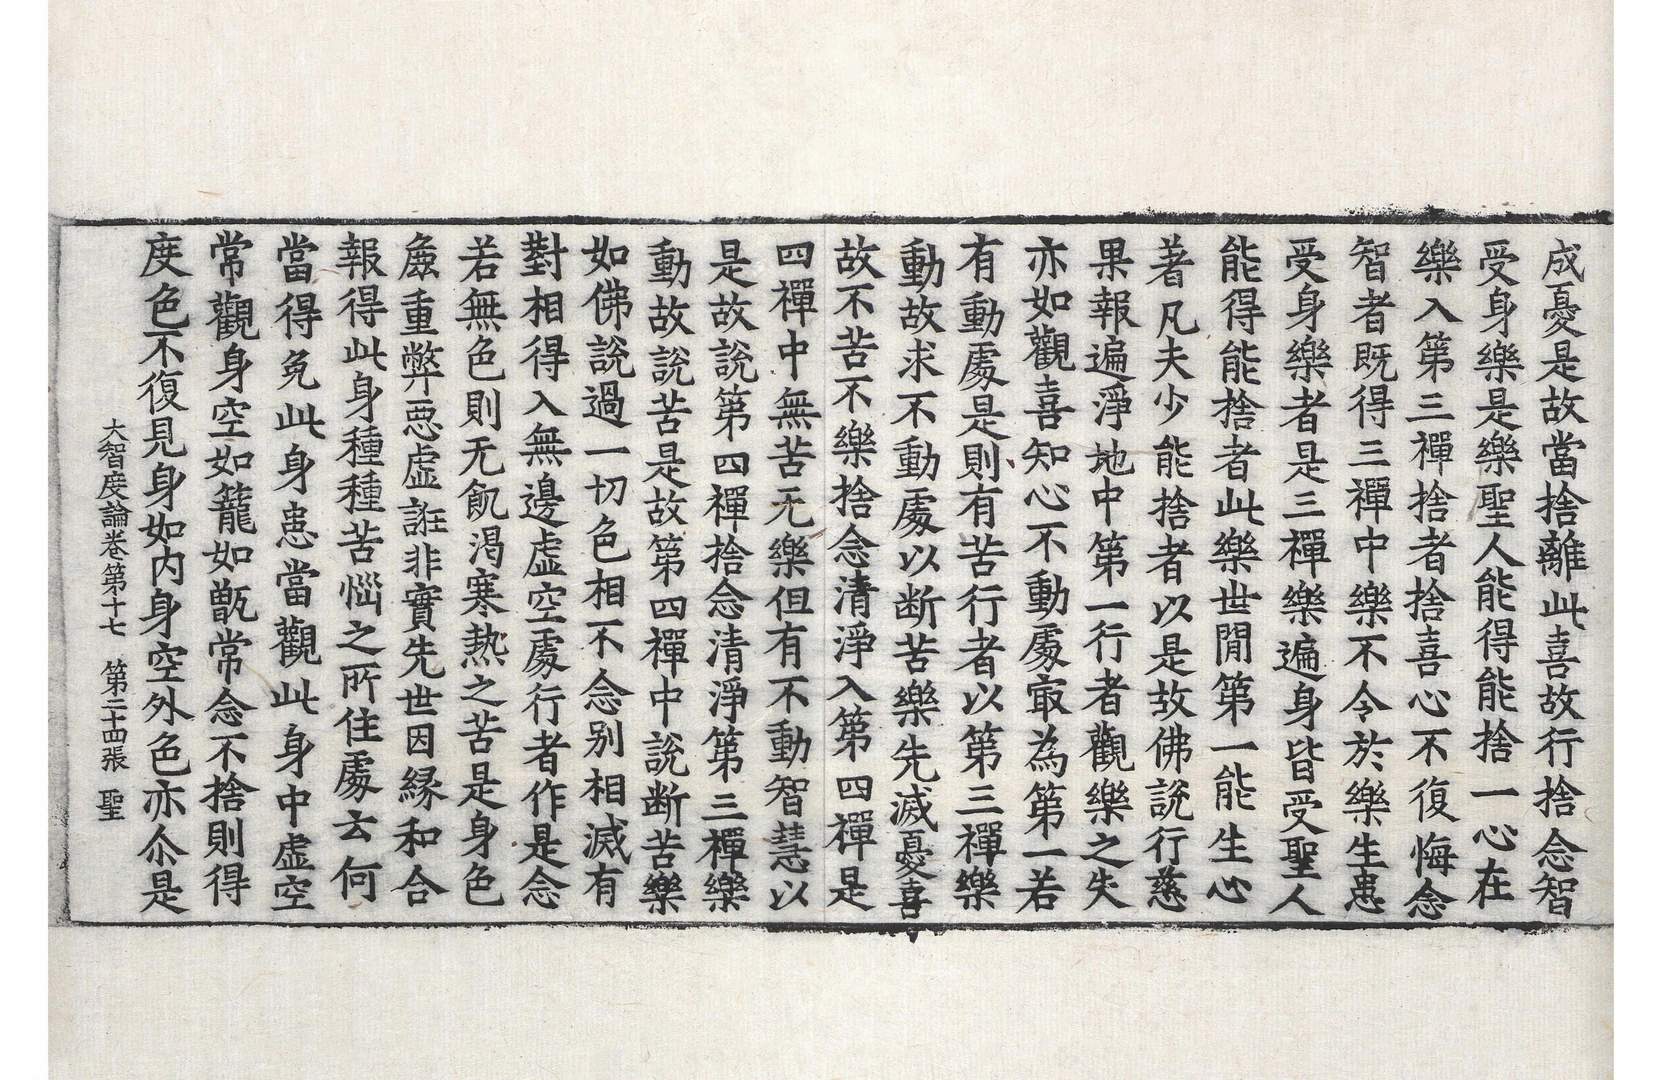 成憂是故當捨離此喜故行捨念智
受身樂是樂聖人能得能捨一心在
樂入第三禪捨者捨喜心不復悔念
智者既得三禪中樂不令於樂生患
受身樂者是三禪樂遍身皆受聖人
能得能捨者此樂世閒第一能生心
著凡夫少能捨者以是故佛說行慈
果報遍淨地中第一行者觀樂之失
亦如觀喜知心不動處㝡為第一若
有動處是則有苦行者以第三禪樂
動故求不動處以断苦樂先滅憂喜
故不苦不樂捨念清淨入第四禪是
四禪中無苦无樂但有不動智慧以
是故說第四禪捨念清淨第三禪樂
動故說苦是故第四禪中說断苦樂
如佛說過一切色相不念別相滅有
對相得入無邊虛空處行者作是念
若無色則无飢渴寒熱之苦是身色
麁重弊惡虛誑非實先世因緣和合
報得此身種種苦惱之所住處云何
當得免此身患當觀此身中虛空
常觀身空如籠如甑常念不捨則得
度色不復見身如內身空外色亦尒是
大智度論卷第十七 第二十四張 聖